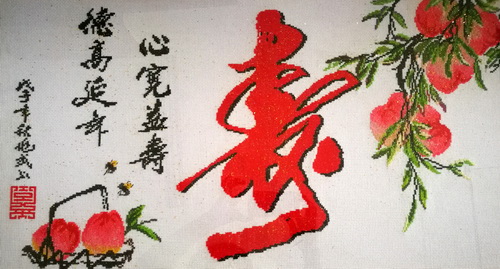 寿
心宽益寿
德高延年
戊子年秋